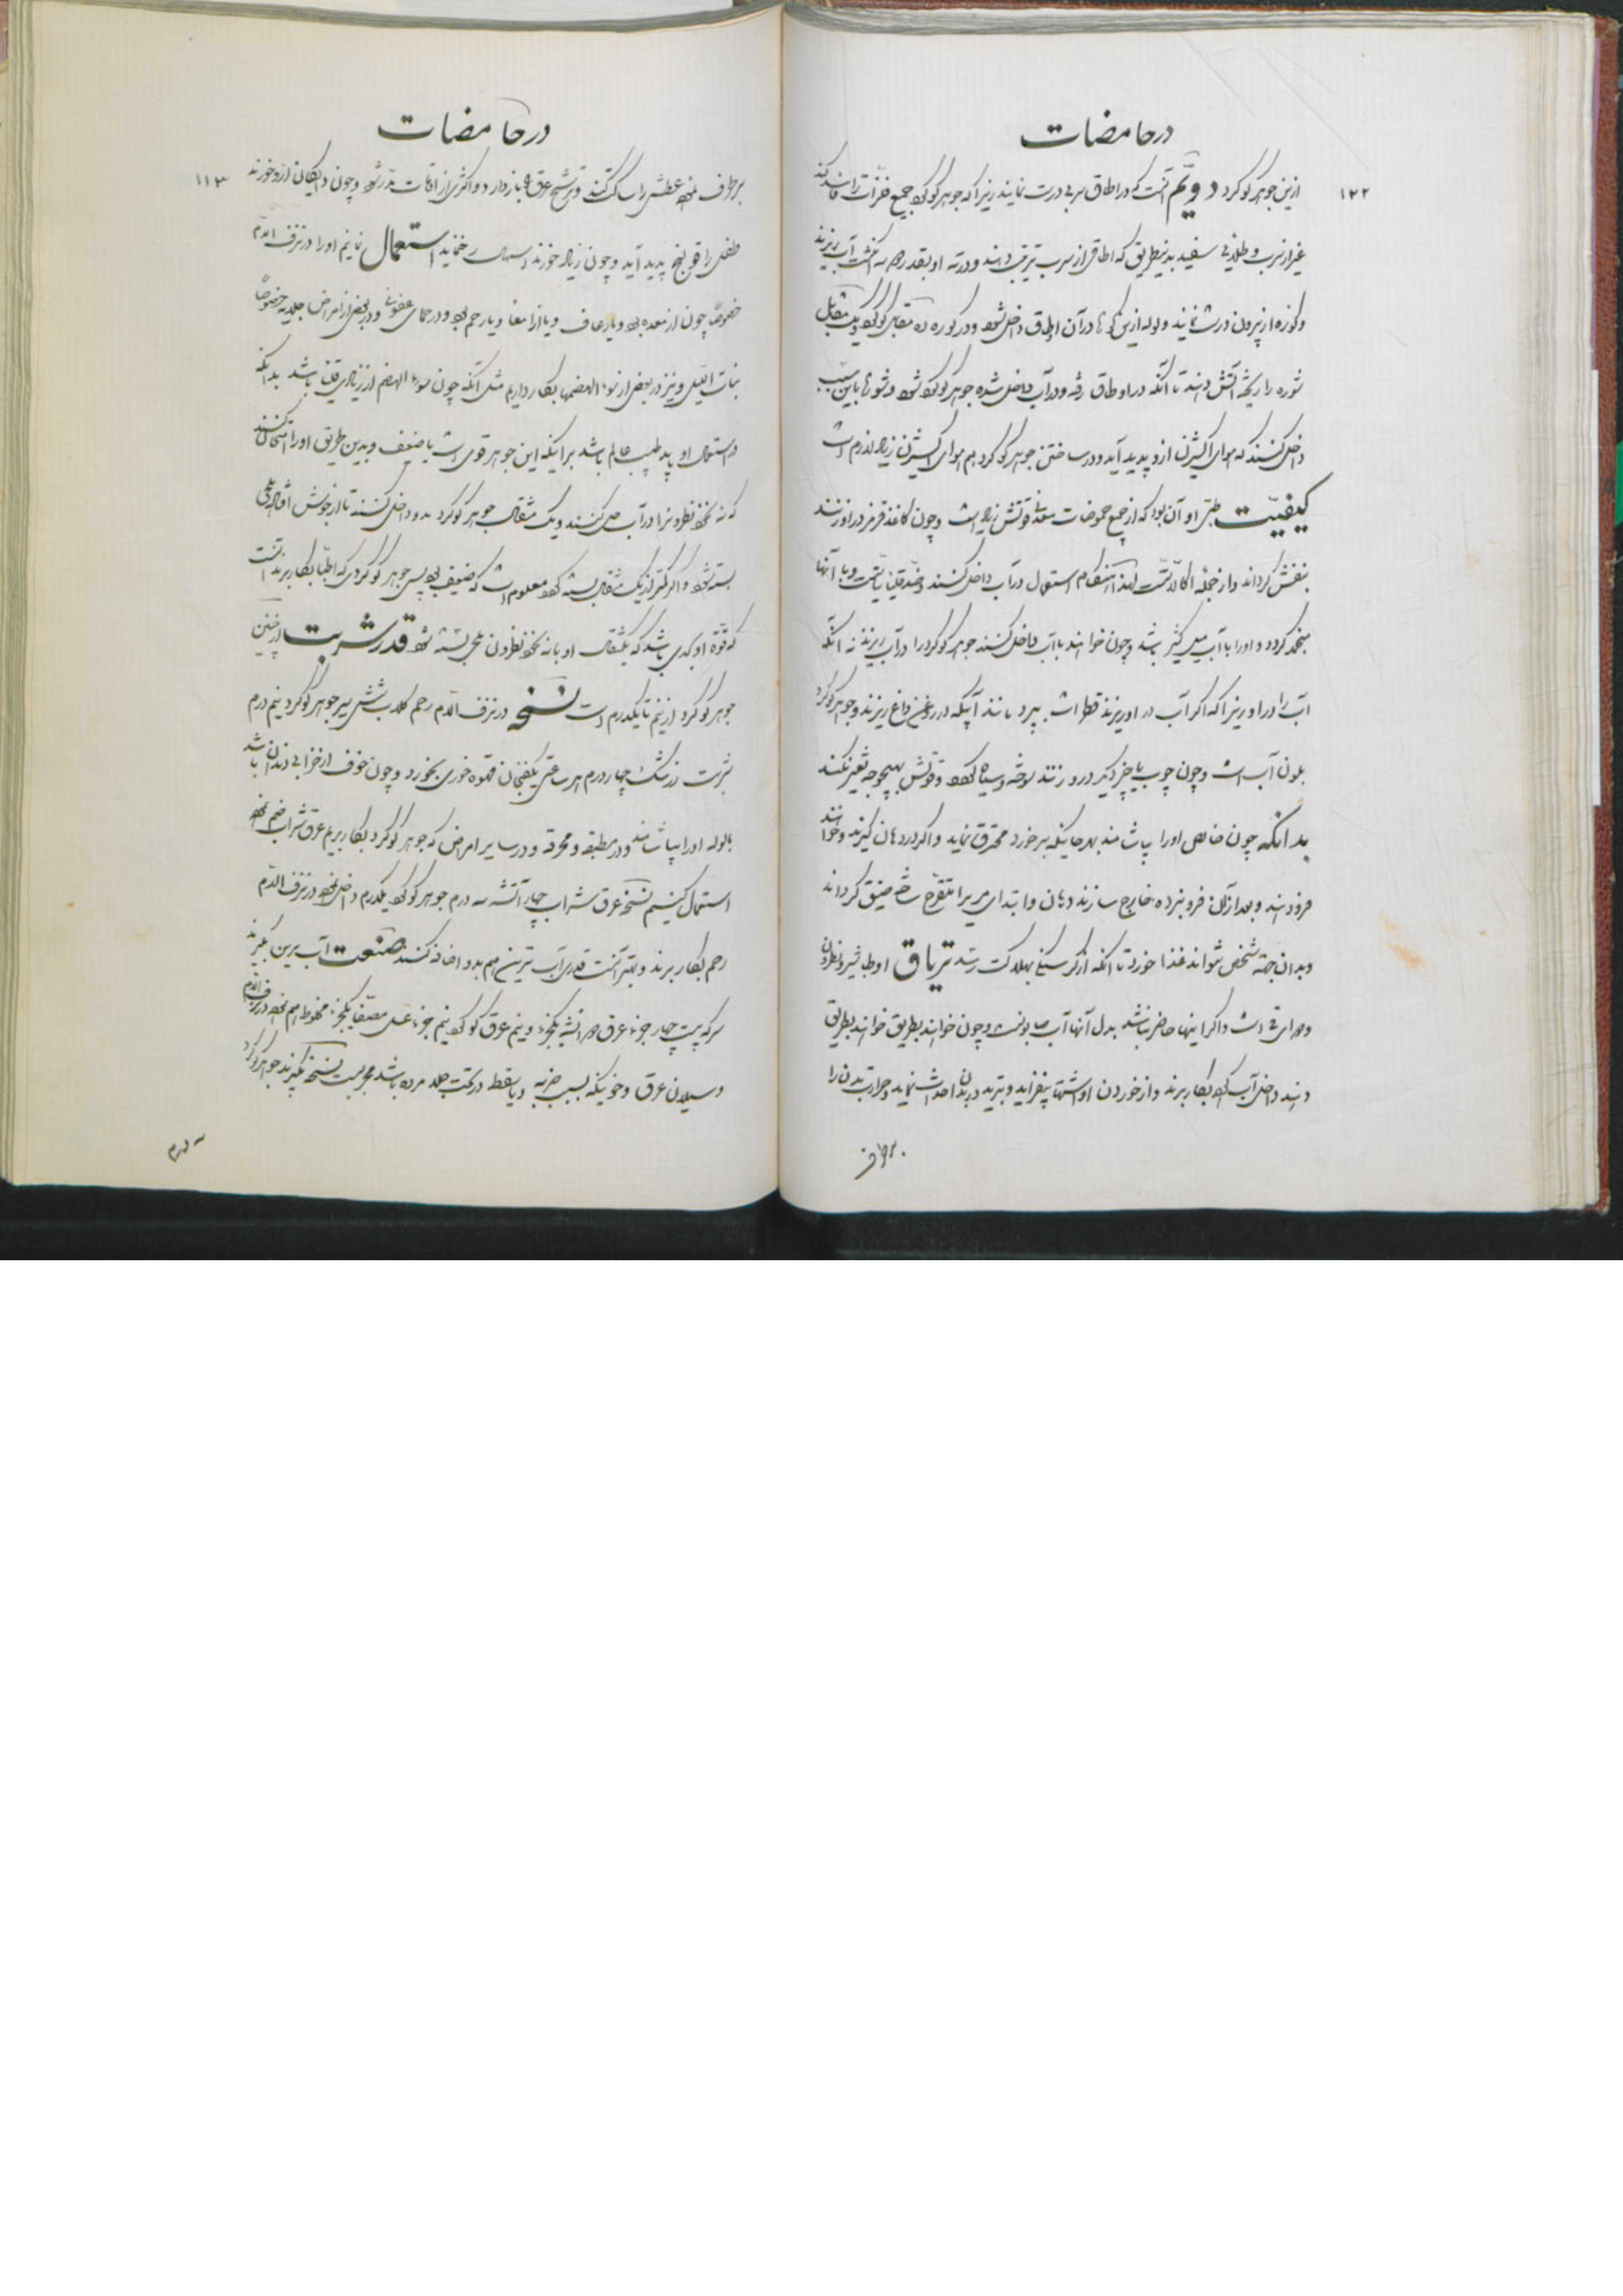 در حامضات
۱۲۲
ازین جوهر کوکرد دویم آنست که در اطاق سربی درست نمایند زیرا که جوهر کوکرد جمیع فلزات را فاسد کند
غیر از سرب و طلای سفید بدینطریق که اطاقی از سرب ترتیب دهند و در ته او بقدر سه انکشت آب ریزند
و کوزه از بیرون درست نمایند و لوله از این در آن اطاق داخل شود و در کوزه ده مثقال کوکرد و یک مثقال
شوره را ریخته آتش دهند تا آنکه در اطاق رفته و در آب داخل شده جوهر کوکرد شود و شوره را باین سبب
داخل کنند که هوای اکسیژن ازو پدید آید و در ساختن جوهر کوکرد هم هوای اکسیژن زیاد لازم است
کیفیت طبی او آن بود که از جمیع حموضات معدنی قوتش زیاد است و چون کاغذ قرمز در او زنند
بنفش کرداند و از جمله اکالات است لهذا هنکام استعمال در آب داخل کنند و با آنها
منجمد کردد و او را با آب میل کثیر باشد و چون خواهند با آب داخل کنند جوهر کوکرد را در آب ریزند نه آنکه
آب را در او زیرا که اکر آب در او ریزند قطرات بپرد مانند آبیکه در روغن داغ ریزند و جوهر کوکرد
بلون آب است و چون چوب یا چیز دیکر درو زنند سوخته و سیاه کردد و قوتش بهیچوجه تغییر نکند
بدانکه چون خالص او را بپاشند بهر جائیکه برخورد محترق نماید و اکر در دهان کیرند و خواهند
فرو دهند و بعد از آن فرو نبرده خارج سازند دهان و ابتدای مری را متقرح ساخته ضیق کرداند
و بدان جهة شخص نتواند غذا خورد تا آنکه از کرسنکی بهلاکت رسد تریاق او طباشیر و نطرون
و دوای قی است و اکر اینها حاضر نباشد بدل آنها آب صابونست و چون خواهند بطریق
دهند داخل آب کرده بکار برند و از خوردن او اشتها بیفزاید و تبرید در بدن احداث نماید و حرارت بدن را
برطرف
در حامضات
۱۱۳
برطرف نموده عطش را ساکت کند و ترشح عرق را باز دارد و اکثری از اوقات مدر شود و چون دایکان ازو خورند
طفل را قولنج پدید آید و چون زیاد خورند اسهال رخ نماید استعمال نمائیم او را در نزف الدم
خصوصا چون از معده بود و یا رعاف و یا از امعا و یا رحم بود و در حمای عفونی و در بعضی از امراض جلدیه خصوصا
بنات اللیل و نیز در بعضی از سوء الهضمها بکار داریم مثل آنکه چون سوء الهضم از زیادی قلیا باشد بدانکه
در استعمال او باید طبیب عالم باشد بر اینکه این جوهر قوی است یا ضعیف و بدین طریق او را امتحان کنند
که نه نخود نطرون را در آب حل کنند و یک مثقال جوهر کوکرد بدو داخل کنند تا از جوش افتاده ملحی
بسته شود و اکر کمتر از یک مثقال بسته کرد معلوم است که ضعیف بود پس جوهر کوکردی که اطبا بکار برند آنست
که قوة او بحدی باشد که یکمثقال او با نه نخود نطرون ملحی بسته شود قدر شربت از چنین
جوهر کوکرد از نیم تا یکدرم است نسخه در نزف الدم رحم کلاب شش سیر جوهر کوکرد نیم درم
شربت زرشک چهار درم هر ساعتی یکفنجان قهوه خوری بخورد و چون خوف از خرابی دندان باشد
با لوله او را بیاشامند و در مطبقه و محرقه و در سایر امراض که جوهر کوکرد بکار بریم عرق شراب ضم نموده
استعمال کنیم نسخه عرق شراب چهار آتشه سه درم جوهر کوکرد یکدرم داخل نموده در نزف الدم
رحم بکار برند و بهتر آنست قدری آب ترین هم بدو اضافه کنند صنعت آب ترین بکیرند
سرکه بیست چهار جزء عرق دو آتشه یکجزء و نیم عرق کوکرد نیم جزء عسل مصفی یکجزء مخلوط بهم نموده در نزف الدم
و سیلان عرق و خونیکه بسبب ضربه و یا سقطه در تحت جلد مرده باشد مجربست نسخه بکیرند جوهر کوکرد
سه درم